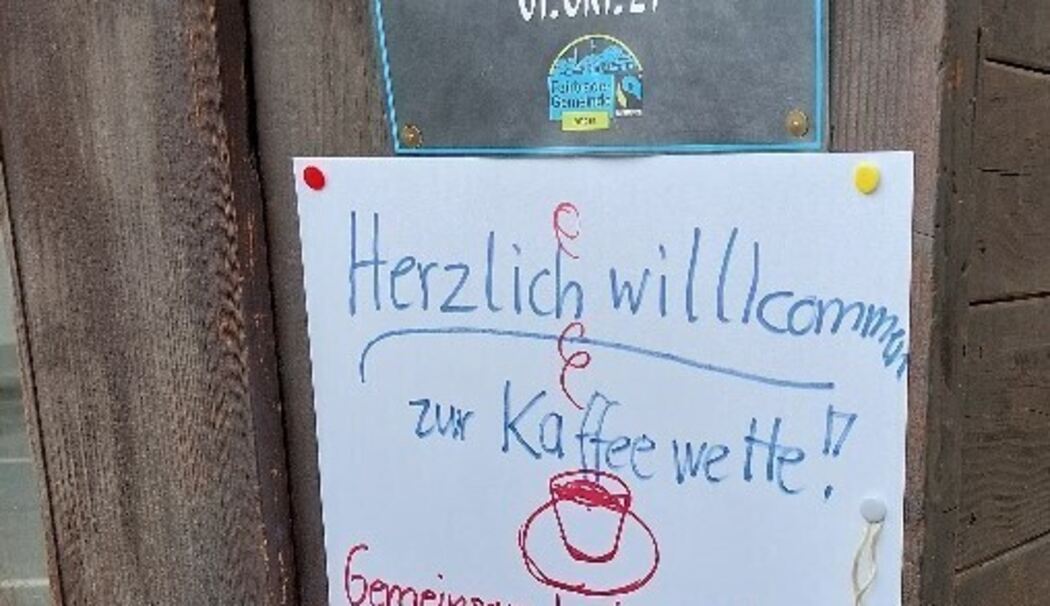 01.OKT.21
Fairtrade-
Gemeinde
Herzlich willlcommen
zur Kaffeewette!
Gemeinsam